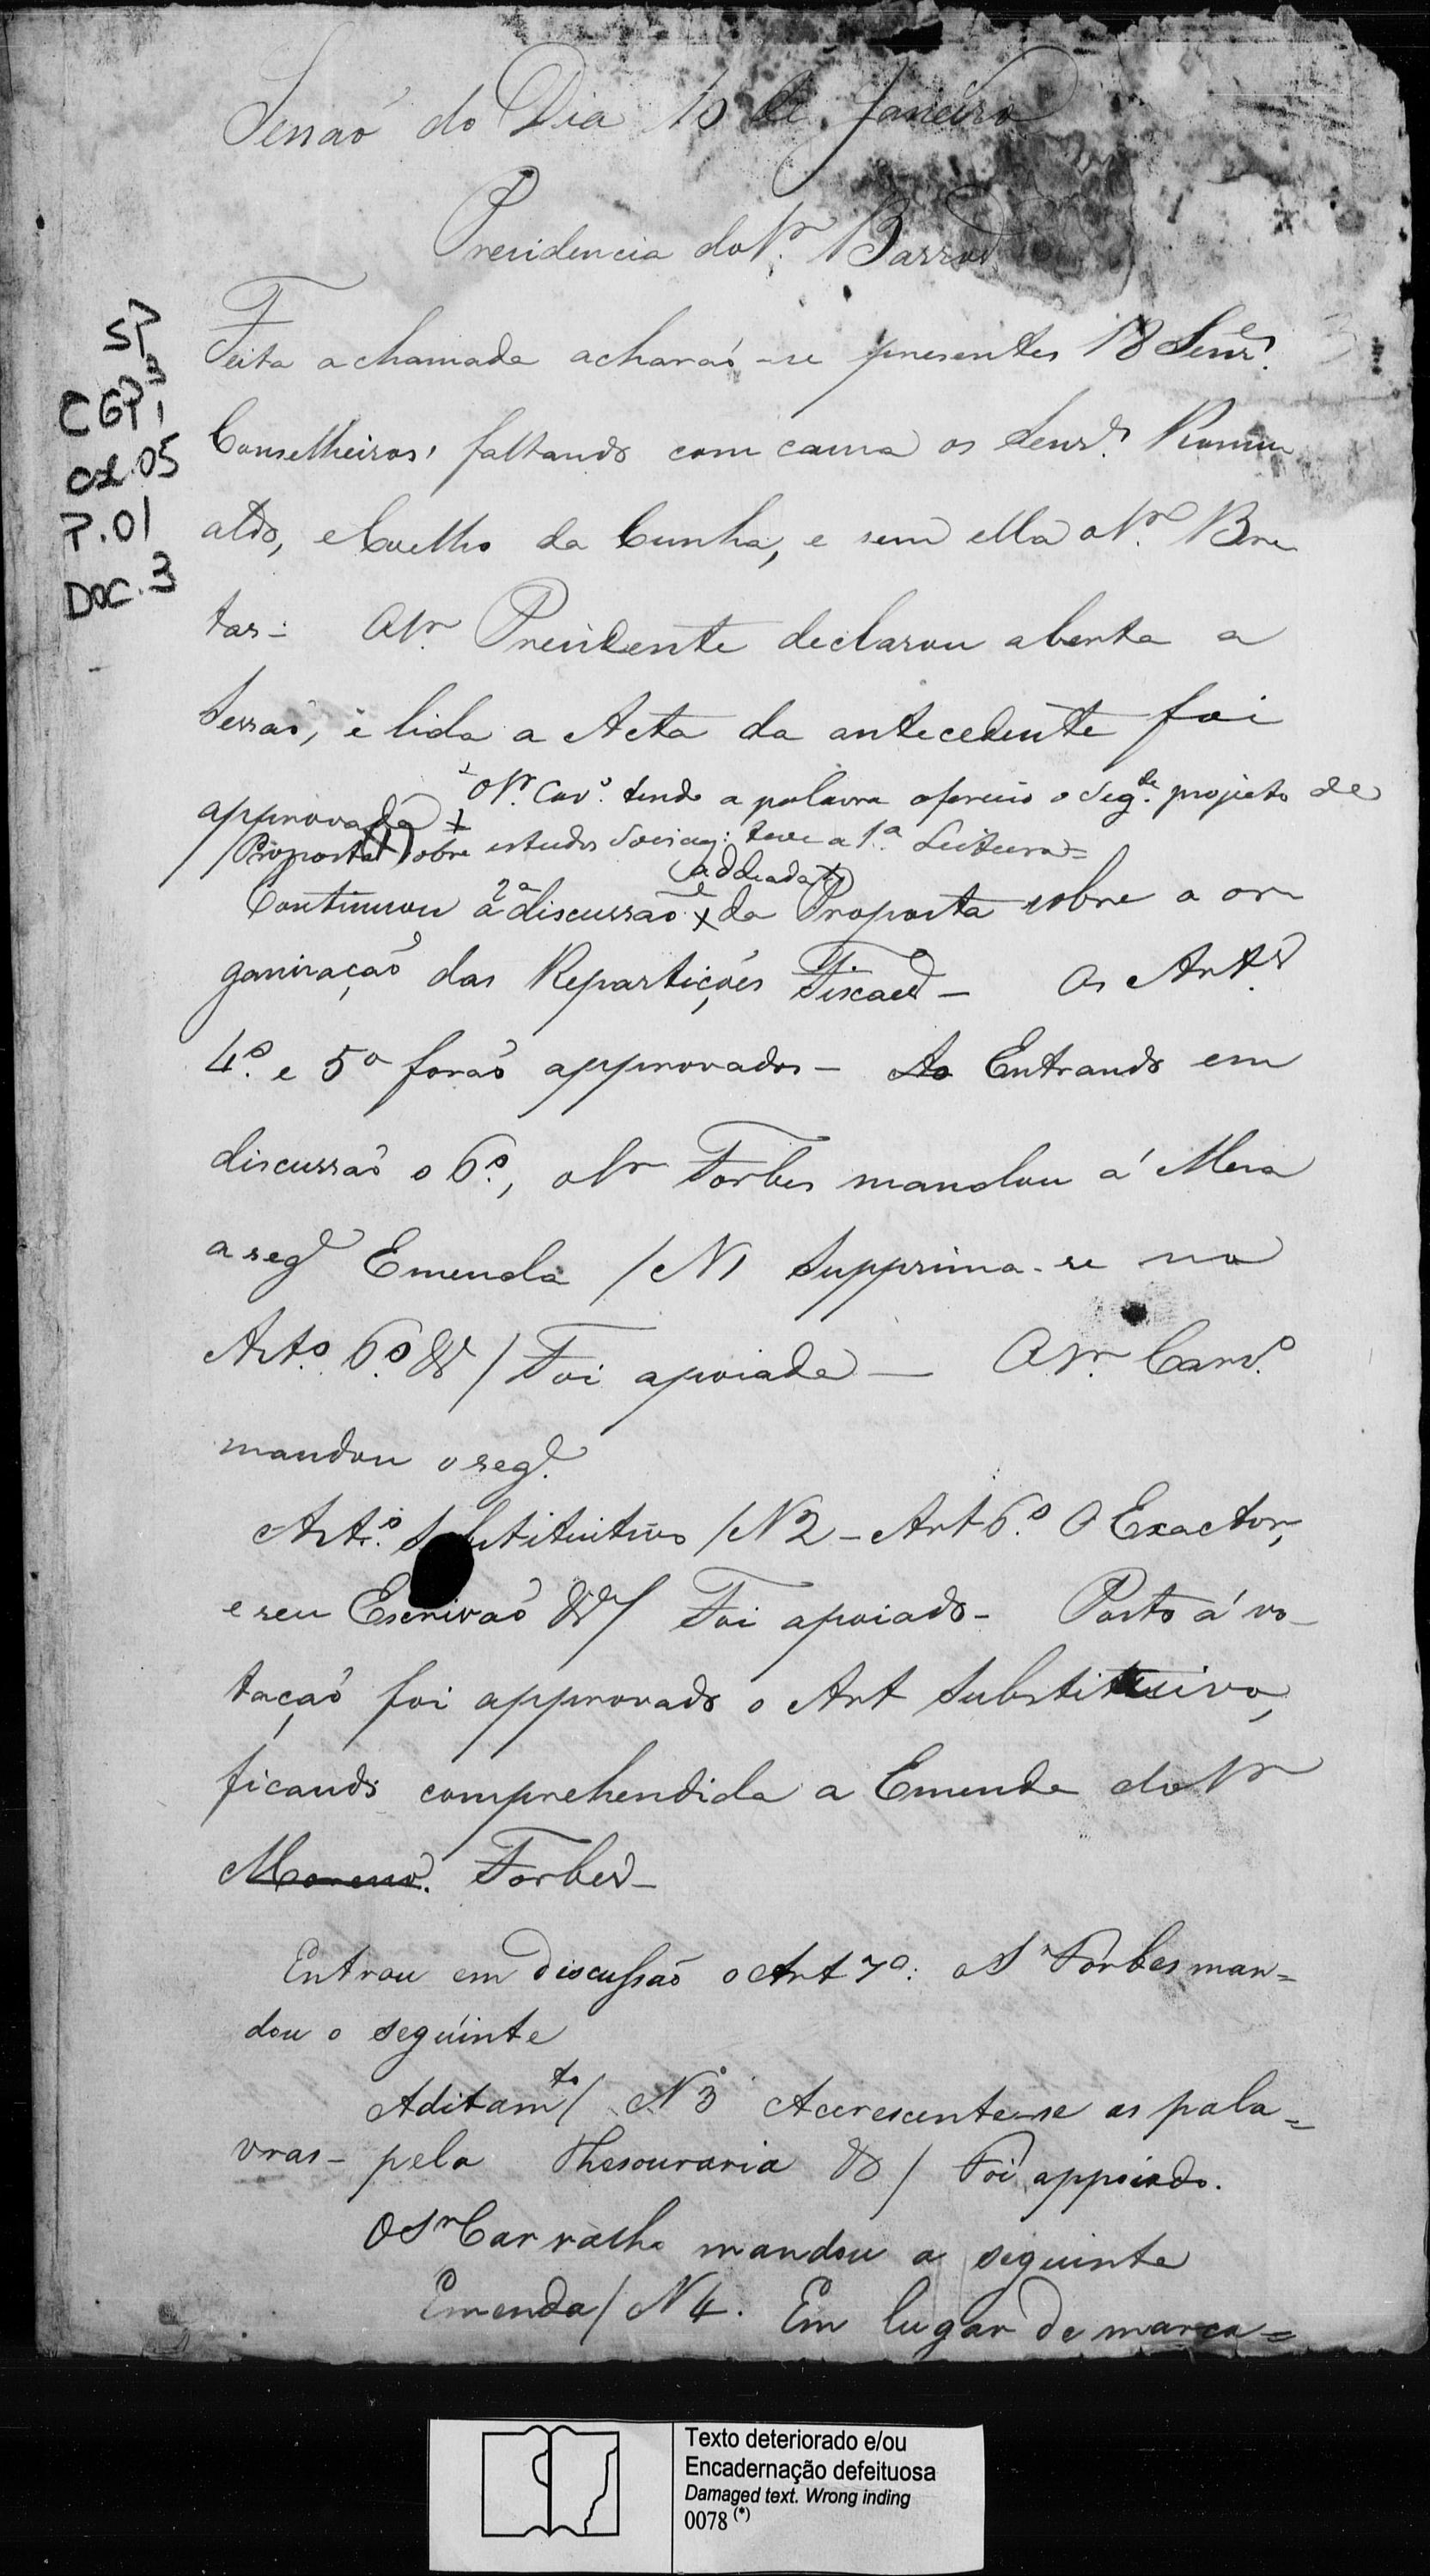 Sessaõ do Dia 10 de Janeiro
Presidencia do Sr. Barros
SP
CGP3
cx.05
P.01
DOC.3
Feita a chamada acharaõ-se presentes 18 Senres.
Conselheiros, faltando com causa os Senrs. Romu
aldo, e Coelho da Cunha, e sem ella o Sr. Bre
tas. O Sr. Presidente declarou aberta a
Sessaõ, e lida a Acta da antecedente foi
approvada +
+ O Sr. Carvo. tendo a palavra offereceo o seg.te projeto de
/Proposta(1) sobre estudos Sociaes: teve a 1.ª Leitura=
(addiada)
Continuou a 2ª discussaõ + da Proposta sobre a or
ganisaçaõ das Repartições Fiscaes - Os Arts.
4.º e 5º foraõ approvados - Ao Entrando em
discussaõ o 6.º, o Sr Forbes mandou á Mesa
a seg.e Emenda /N1 Supprima-se no
Art.º 6.º &/ Foi apoiada - O Sr. Carv.º
mandou o seg.e
Art.º Substitutivo /N2 - Art 6.º O Exactor,
e seu Escrivaõ &/ Foi apoiado - Posto á vo-
taçaõ foi approvado o Art Substitutivo,
ficando comprehendida a Emenda do Sr
Moreno. Forbes -
Entrou em discussaõ o Art 7º: o Sr Forbes man=
dou o seguinte
Aditamto/ N3 Accrescente-se as pala=
vras - pela Thesouraria &/ Foi appoiado.
O Sr Carvalho mandou a seguinte
Emenda/ N4. Em lugar de marca=
Texto deteriorado e/ou
Encadernação defeituosa
Damaged text. Wrong inding
0078 (*)